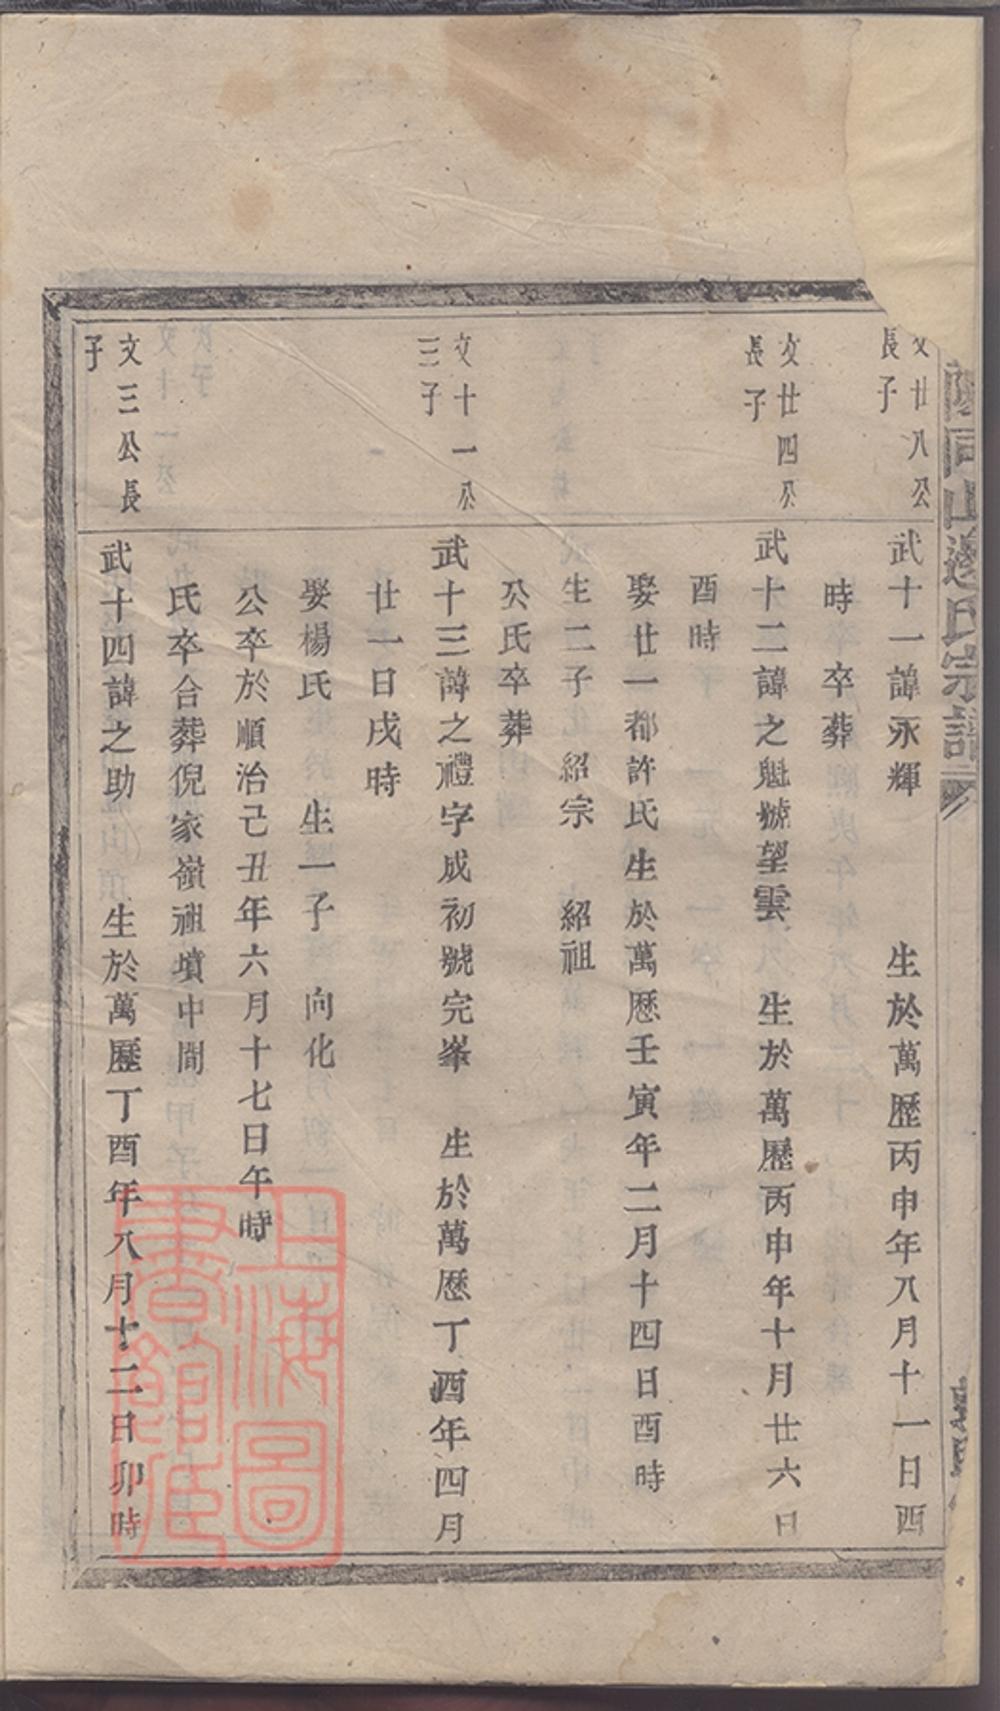 同山邊氏宗譜
文廿八公
長子
武十一諱永輝 生於萬歷丙申年八月十一日酉
時 卒葬
文廿四公
長子
武十二諱之魁號望雲 生於萬歷丙申年十月廿六日
酉時
娶廿一都許氏生於萬歷壬寅年二月十四日酉時
生二子 紹宗 紹祖
公氏卒葬
文十一公
三子
武十三諱之禮字成初號完峯 生於萬歷丁酉年四月
廿一日戌時
娶楊氏 生一子 向化
公卒於順治己丑年六月十七日午時
氏卒合葬倪家嶺祖墳中間
文三公長
子
武十四諱之助 生於萬歷丁酉年八月十二日卯時
上海圖
書館藏